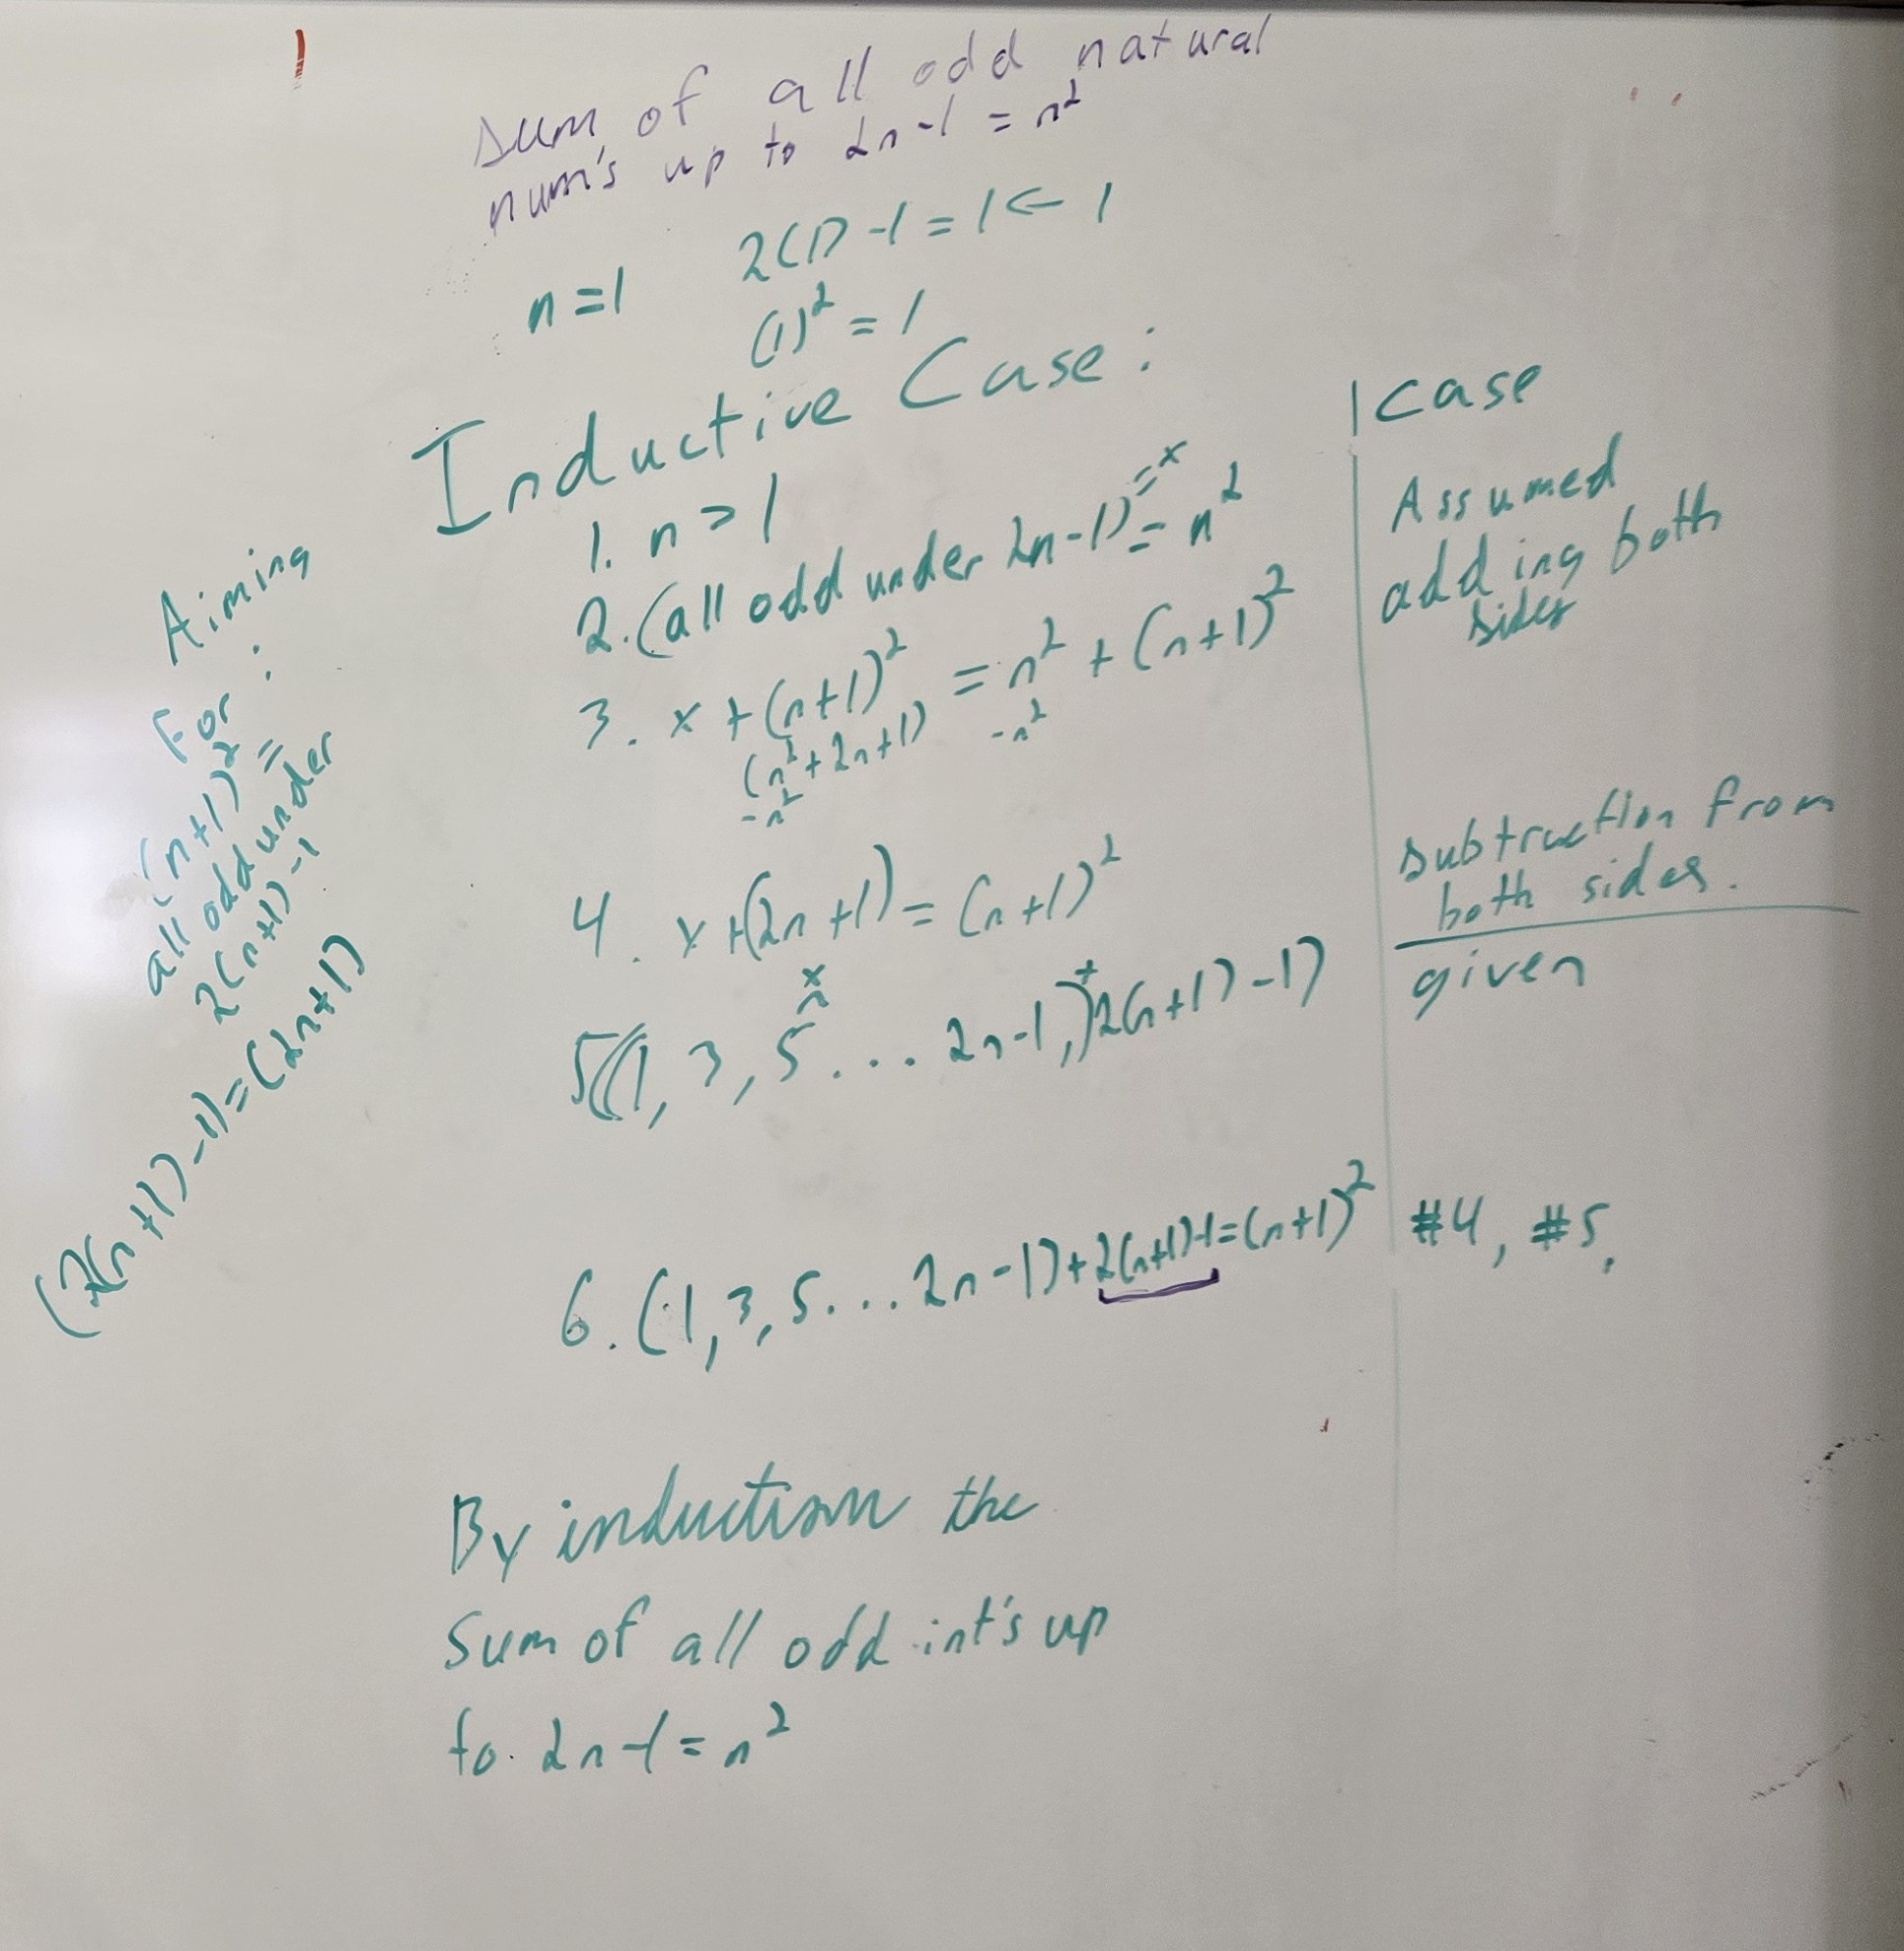 sum of all odd natural
num's up to 2n-1 = n²
n=1 2(1)-1=1 ← 1
(1)² = 1
Inductive Case:
1. n>1 | case
2. (all odd under 2n-1) = n² Assumed
= x
3. x + (n+1)² = n² + (n+1)² adding both
sides
(n²+2n+1) -n²
-n²
4. x+(2n+1) = (n+1)² subtraction from
both sides.
x
5((1, 3, 5 ... 2n-1,)+2(n+1)-1) given
6. (1,3,5...2n-1)+2(n+1)-1=(n+1)² #4, #5.
By induction the
sum of all odd int's up
to 2n-1=n²
Aiming
For:
(n+1)² =
all odd under
2(n+1)-1
(2(n+1)-1)=(2n+1)